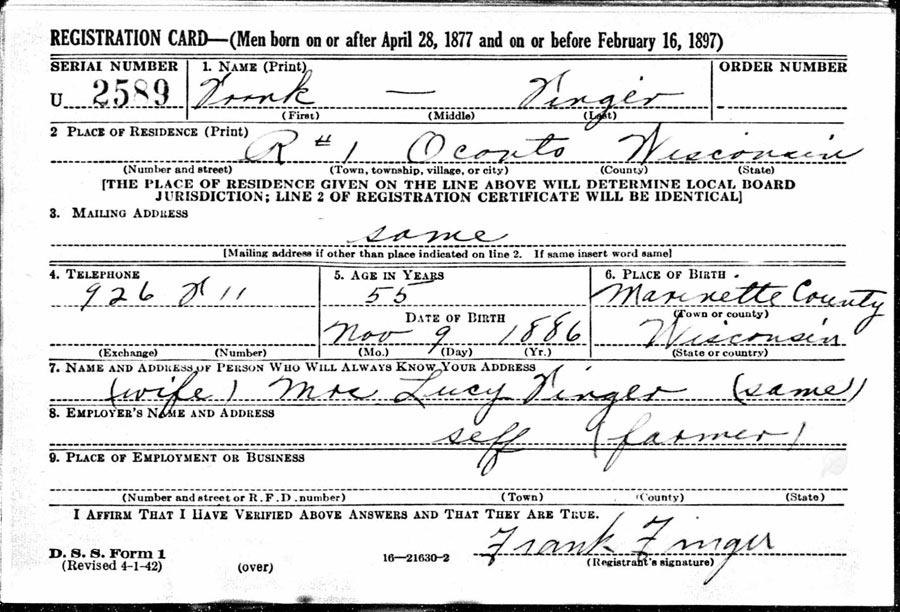 REGISTRATION CARD—(Men born on or after April 28, 1877 and on or before February 16, 1897)
SERIAL NUMBER 1. NAME (Print) ORDER NUMBER
U 2589 Frank — Finger
(First) (Middle) (Last)
2 PLACE OF RESIDENCE (Print)
R #1 Oconto Wisconsin
(Number and street) (Town, township, village, or city) (County) (State)
[THE PLACE OF RESIDENCE GIVEN ON THE LINE ABOVE WILL DETERMINE LOCAL BOARD
JURISDICTION; LINE 2 OF REGISTRATION CERTIFICATE WILL BE IDENTICAL]
3. MAILING ADDRESS
same
[Mailing address if other than place indicated on line 2. If same insert word same]
4. TELEPHONE 5. AGE IN YEARS 6. PLACE OF BIRTH
926 F 11 55 Marinette County
(Town or county)
DATE OF BIRTH
Nov 9 1886 Wisconsin
(Exchange) (Number) (Mo.) (Day) (Yr.) (State or country)
7. NAME AND ADDRESS OF PERSON WHO WILL ALWAYS KNOW YOUR ADDRESS
(wife) Mrs Lucy Finger (same)
8. EMPLOYER'S NAME AND ADDRESS
self (farmer)
9. PLACE OF EMPLOYMENT OR BUSINESS
(Number and street or R. F. D. number) (Town) (County) (State)
I AFFIRM THAT I HAVE VERIFIED ABOVE ANSWERS AND THAT THEY ARE TRUE.
Frank Finger
D. S. S. Form 1
(Revised 4-1-42) (over) 16—21630-2 (Registrant's signature)